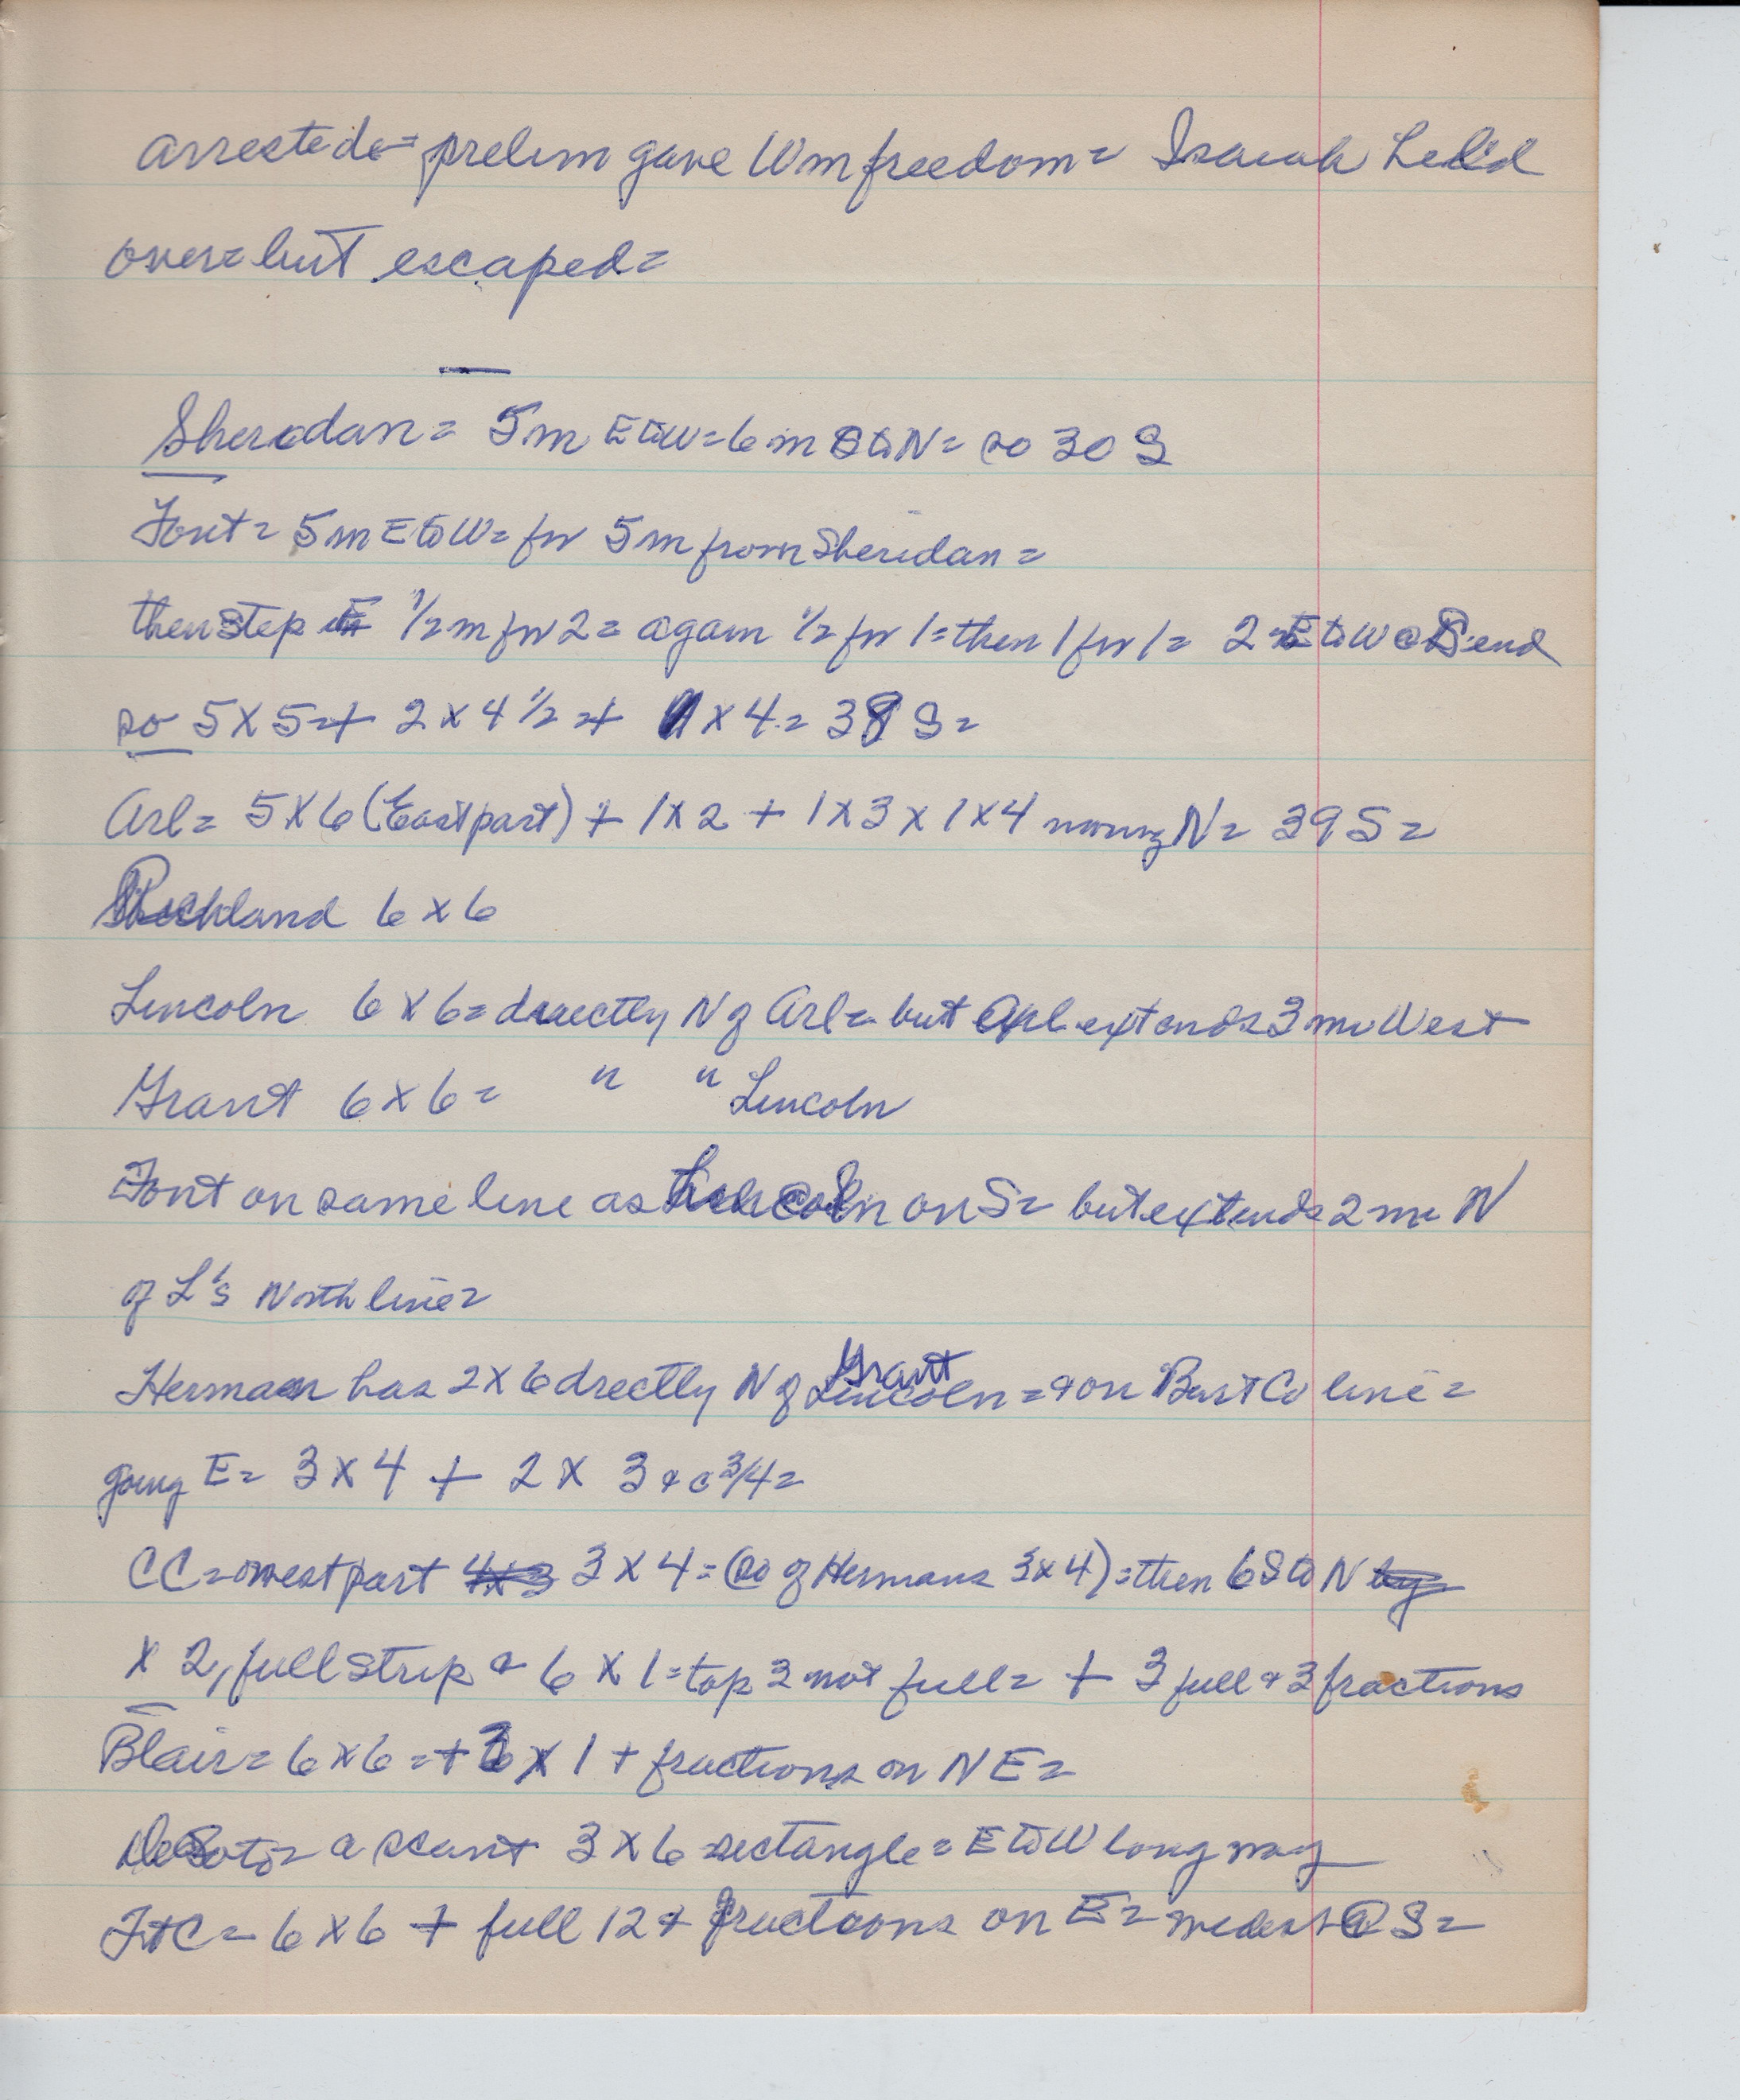 arrested = prelim gave Wm freedom = Isaiah held
over = but escaped =
Sheridan = 5m E to W = 6 m S to N = so 30 S
Font = 5 m E to W = for 5 m from Sheridan =
then step E 1/2 m for 2 = again 1/2 for 1 = then 1 for 1 = 2 = E to W @ S end
so 5 X 5 = + 2 x 4 1/2 = + 1 x 4 = 38 S =
Arl = 5 X 6 (East part) + 1 x 2 + 1 x 3 x 1 x 4 moving N = 39 S =
Richland 6 x 6
Lincoln 6 x 6 = directly N of Arl = but Arl extends 3 mi West
Grant 6 x 6 = " " Lincoln
Font on same line as Lincoln on S = but extends 2 mi N
of L's North line =
Herman has 2 x 6 drectly N of Lincoln Grant = & on Burt Co line =
going E = 3 x 4 + 2 x 3 & 3/4 =
CC = west part 4 x 3 3 x 4 = (so of Hermans 3 x 4) = then 6 S to N by
x 2, full strip & 6 x 1 = top 3 not full = + 3 full & 3 fractions
Blair = 6 x 6 = + 3 x 1 + fractions on N E =
DeSoto = a scant 3 x 6 rectangle = E to W long way
Ft C = 6 x 6 + full 12 + fractions on E = widest @ S =